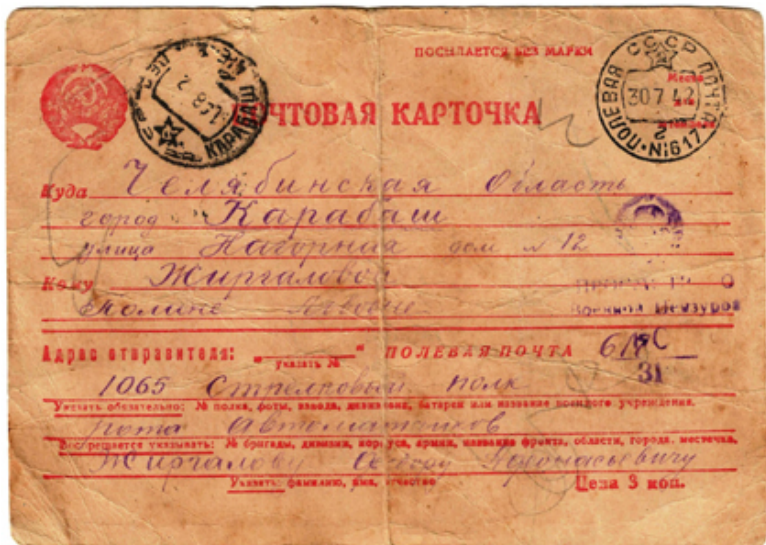 ПОСЫЛАЕТСЯ БЕЗ МАРКИ
ПОЧТОВАЯ КАРТОЧКА
Место для
СССР
ПОЛЕВАЯ ПОЧТА
30 7 42
№ 617
КАРАБАШ
Куда Челябинская область
город Карабаш
улица Нагорная дом № 12
Кому Жиргаловой
Полине
Военной Цензурой
Адрес отправителя: „ “ ПОЛЕВАЯ ПОЧТА
указать №
31
1065 Стрелковый полк
Указать обязательно: № полка, роты, взвода, дивизиона, батареи или название военного учреждения.
Рота Автоматчиков
Воспрещается указывать: № бригады, дивизии, корпуса, армии, название фронта, области, города, местечка.
Жиргалову
Указать: фамилию, имя, отчество
Цена 3 коп.